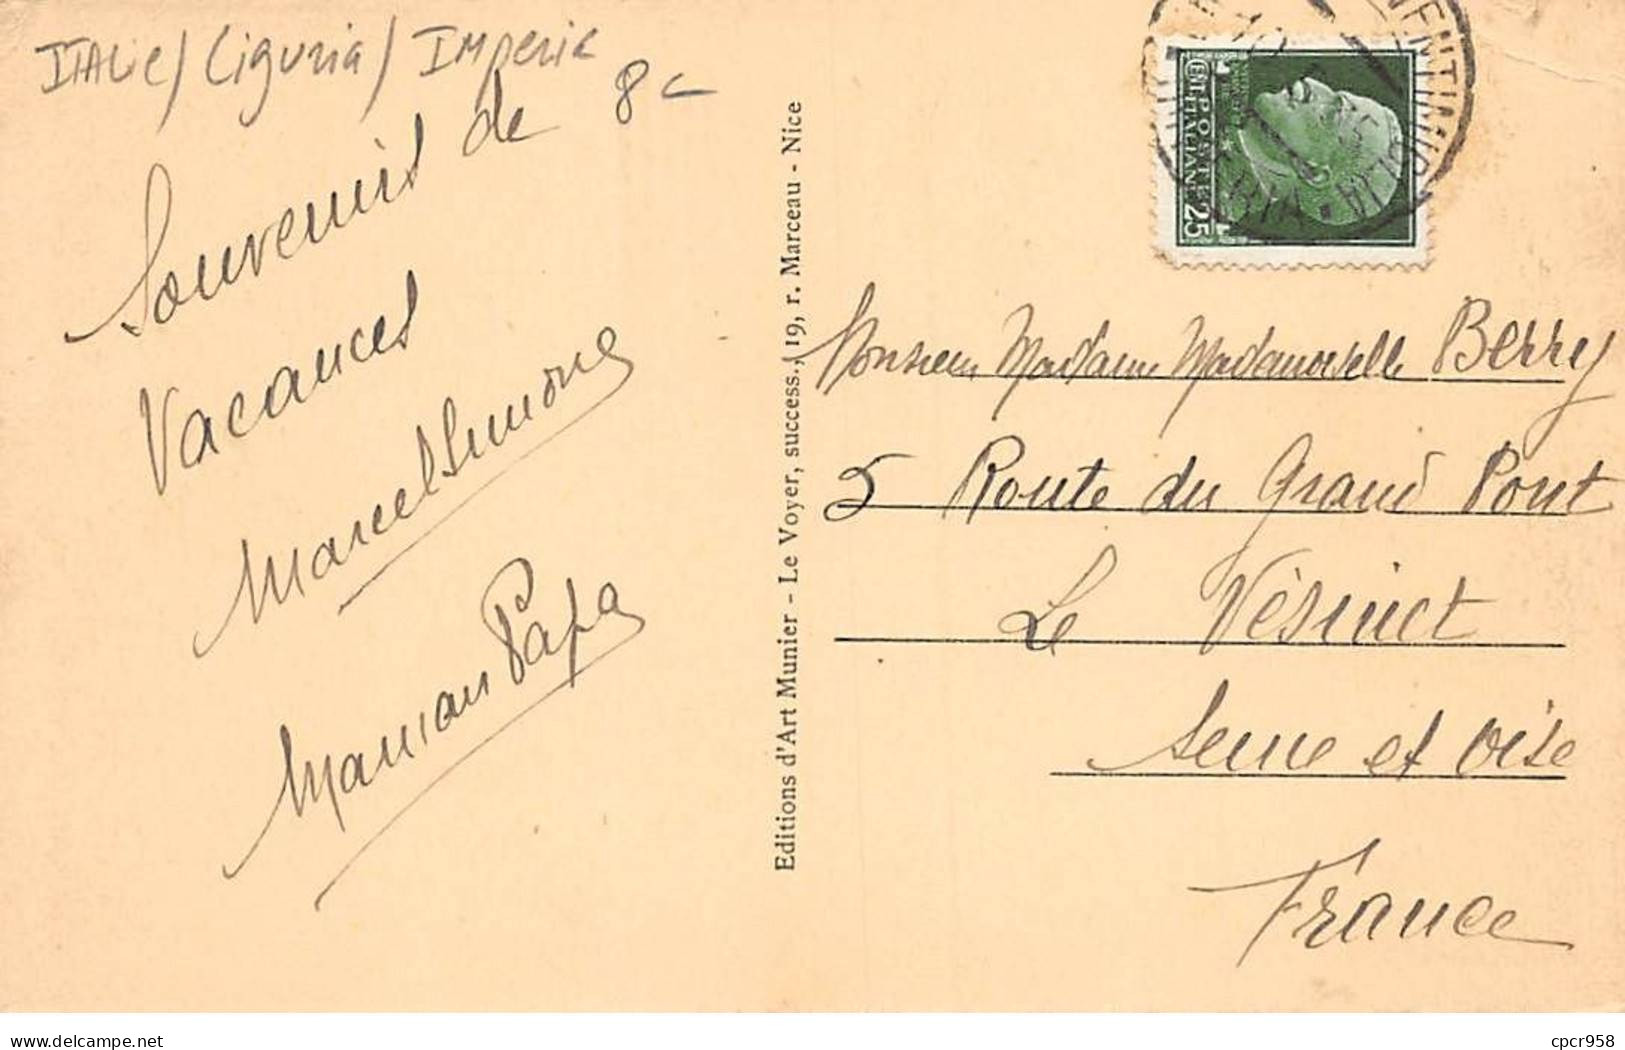 ITALIE / Liguria / Imperia
8 c
Souvenirs de
Vacances
Marcel Simone
Maman Papa
Editions d'Art Munier - Le Voyer, success., 19, r. Marceau - Nice
VENTIMIGLIA
POSTE
ITALIANE
25
Monsieur Madame Mademoiselle Berry
5 Route du Grand Pont
Le Vésinet
Seine et Oise
France
www.delcampe.net
cpcr958